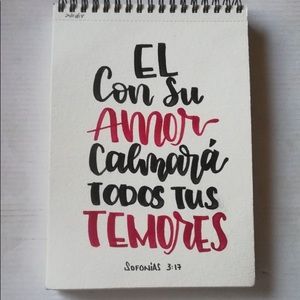 EL
Con Su
AMOR
Calmará
TODOS TUS
TEMORES
SOFONIAS 3:17